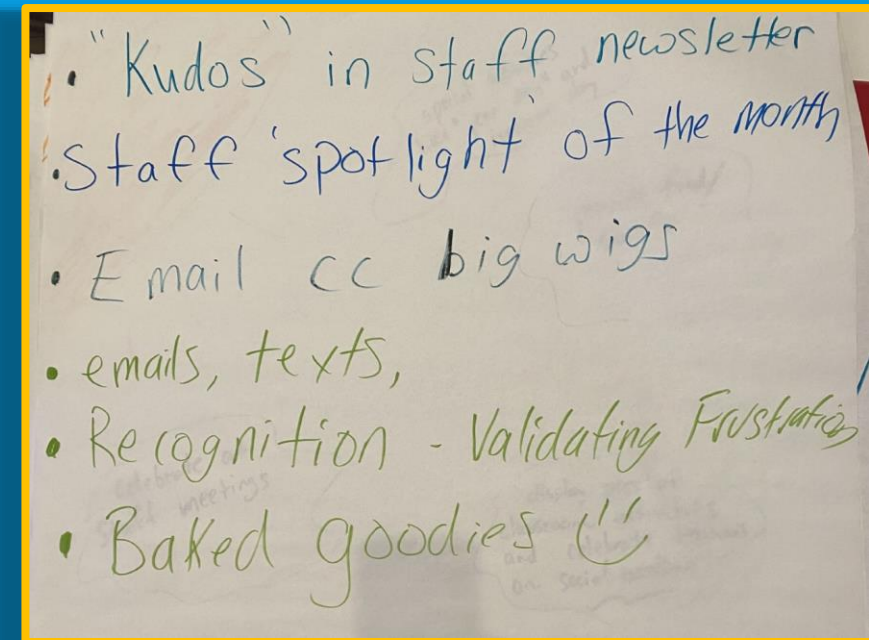 • "Kudos" in staff newsletter
• Staff 'spotlight' of the month
• Email cc big wigs
• emails, texts,
• Recognition - Validating Frustration
• Baked goodies